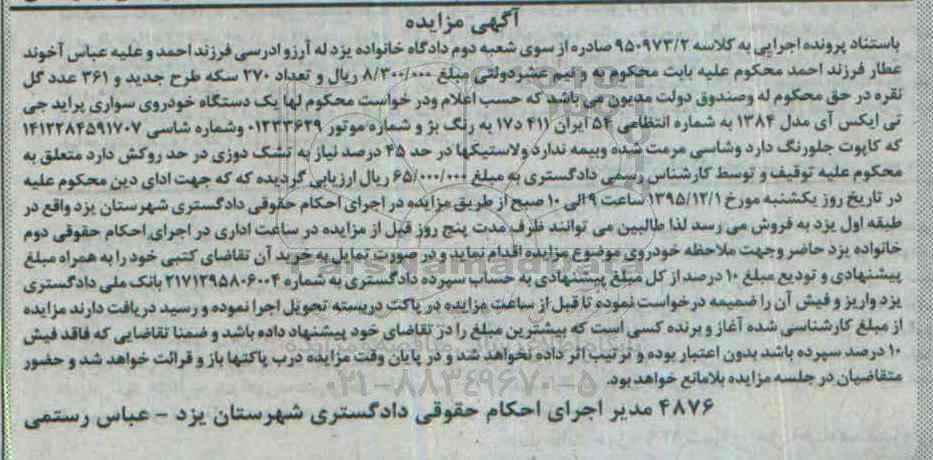 آگهی مزایده
باستناد پرونده اجرایی به کلاسه ۹۵۰۹۷۳/۲ صادره از سوی شعبه دوم دادگاه خانواده یزد له آرزو ادرسی فرزند احمد و علیه عباس آخوند
عطار فرزند احمد محکوم علیه بابت محکوم به و نیم عشر دولتی مبلغ ۸/۳۰۰/۰۰۰ ریال و تعداد ۲۷۰ سکه طرح جدید و ۳۶۱ عدد گل
نقره در حق محکوم له وصندوق دولت مدیون می باشد که حسب اعلام ودر خواست محکوم لها یک دستگاه خودروی سواری پراید جی
تی ایکس آی مدل ۱۳۸۴ به شماره انتظامی ۵۴ ایران ۴۱۱ د۱۷ به رنگ بژ و شماره موتور ۰۱۳۳۳۶۳۹ وشماره شاسی ۱۴۱۲۲۸۴۵۹۱۷۰۷
که کاپوت جلورنگ دارد وشاسی مرمت شده وبیمه ندارد ولاستیکها در حد ۴۵ درصد نیاز به تشک دوزی در حد روکش دارد متعلق به
محکوم علیه توقیف و توسط کارشناس رسمی دادگستری به مبلغ ۶۵/۰۰۰/۰۰۰ ریال ارزیابی گردیده که که جهت ادای دین محکوم علیه
در تاریخ روز یکشنبه مورخ ۱۳۹۵/۱۲/۱ ساعت ۹ الی ۱۰ صبح از طریق مزایده در اجرای احکام حقوقی دادگستری شهرستان یزد واقع در
طبقه اول یزد به فروش می رسد لذا طالبین می توانند ظرف مدت پنج روز قبل از مزایده در ساعت اداری در اجرای احکام حقوقی دوم
خانواده یزد حاضر وجهت ملاحظه خودروی موضوع مزایده اقدام نماید و در صورت تمایل به خرید آن تقاضای کتبی خود را به همراه مبلغ
پیشنهادی و تودیع مبلغ ۱۰ درصد از کل مبلغ پیشنهادی به حساب سپرده دادگستری به شماره ۲۱۷۱۲۹۵۸۰۶۰۰۴ بانک ملی دادگستری
یزد واریز و فیش آن را ضمیمه درخواست نموده تا قبل از ساعت مزایده در پاکت دربسته تحویل اجرا نموده و رسید دریافت دارند مزایده
از مبلغ کارشناسی شده آغاز و برنده کسی است که بیشترین مبلغ را در تقاضای خود پیشنهاد داده باشد و ضمنا تقاضایی که فاقد فیش
۱۰ درصد سپرده باشد بدون اعتبار بوده و ترتیب اثر داده نخواهد شد و در پایان وقت مزایده درب پاکتها باز و قرائت خواهد شد و حضور
متقاضیان در جلسه مزایده بلامانع خواهد بود.
۰۲۱-۸۸۳۴۹۶۷۰-۵
۴۸۷۶ مدیر اجرای احکام حقوقی دادگستری شهرستان یزد - عباس رستمی